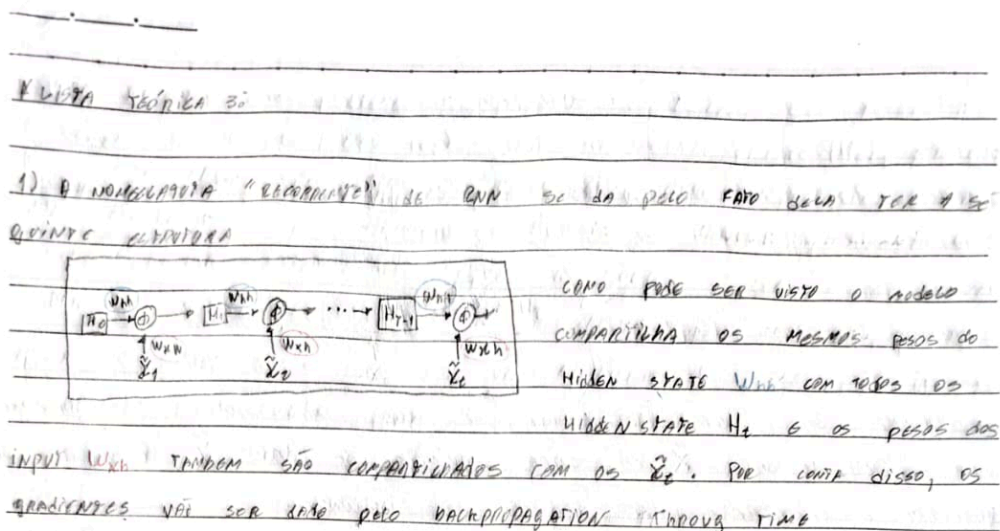 LISTA TEÓRICA 3:
1) A NOMECLATURA "RECORRENTE" de RNN SE DA PELO FATO DELA TER A SE
GUINTE ESTRUTURA
Whh Whh Whh
H0 H1 ... HT-1
Wxh Wxh Wxh
x̃1 x̃2 x̃t
COMO PODE SER VISTO O MODELO
COMPARTILHA OS MESMOS PESOS DO
HIDDEN STATE Whh COM TODOS OS
HIDDEN STATE Ht E OS PESOS DOS
INPUT Wxh TAMBEM SÃO COMPARTILHADOS COM OS x̃t. POR CONTA DISSO, OS
GRADIENTES VÃO SER DADO PELO BACKPROPAGATION THROUG TIME